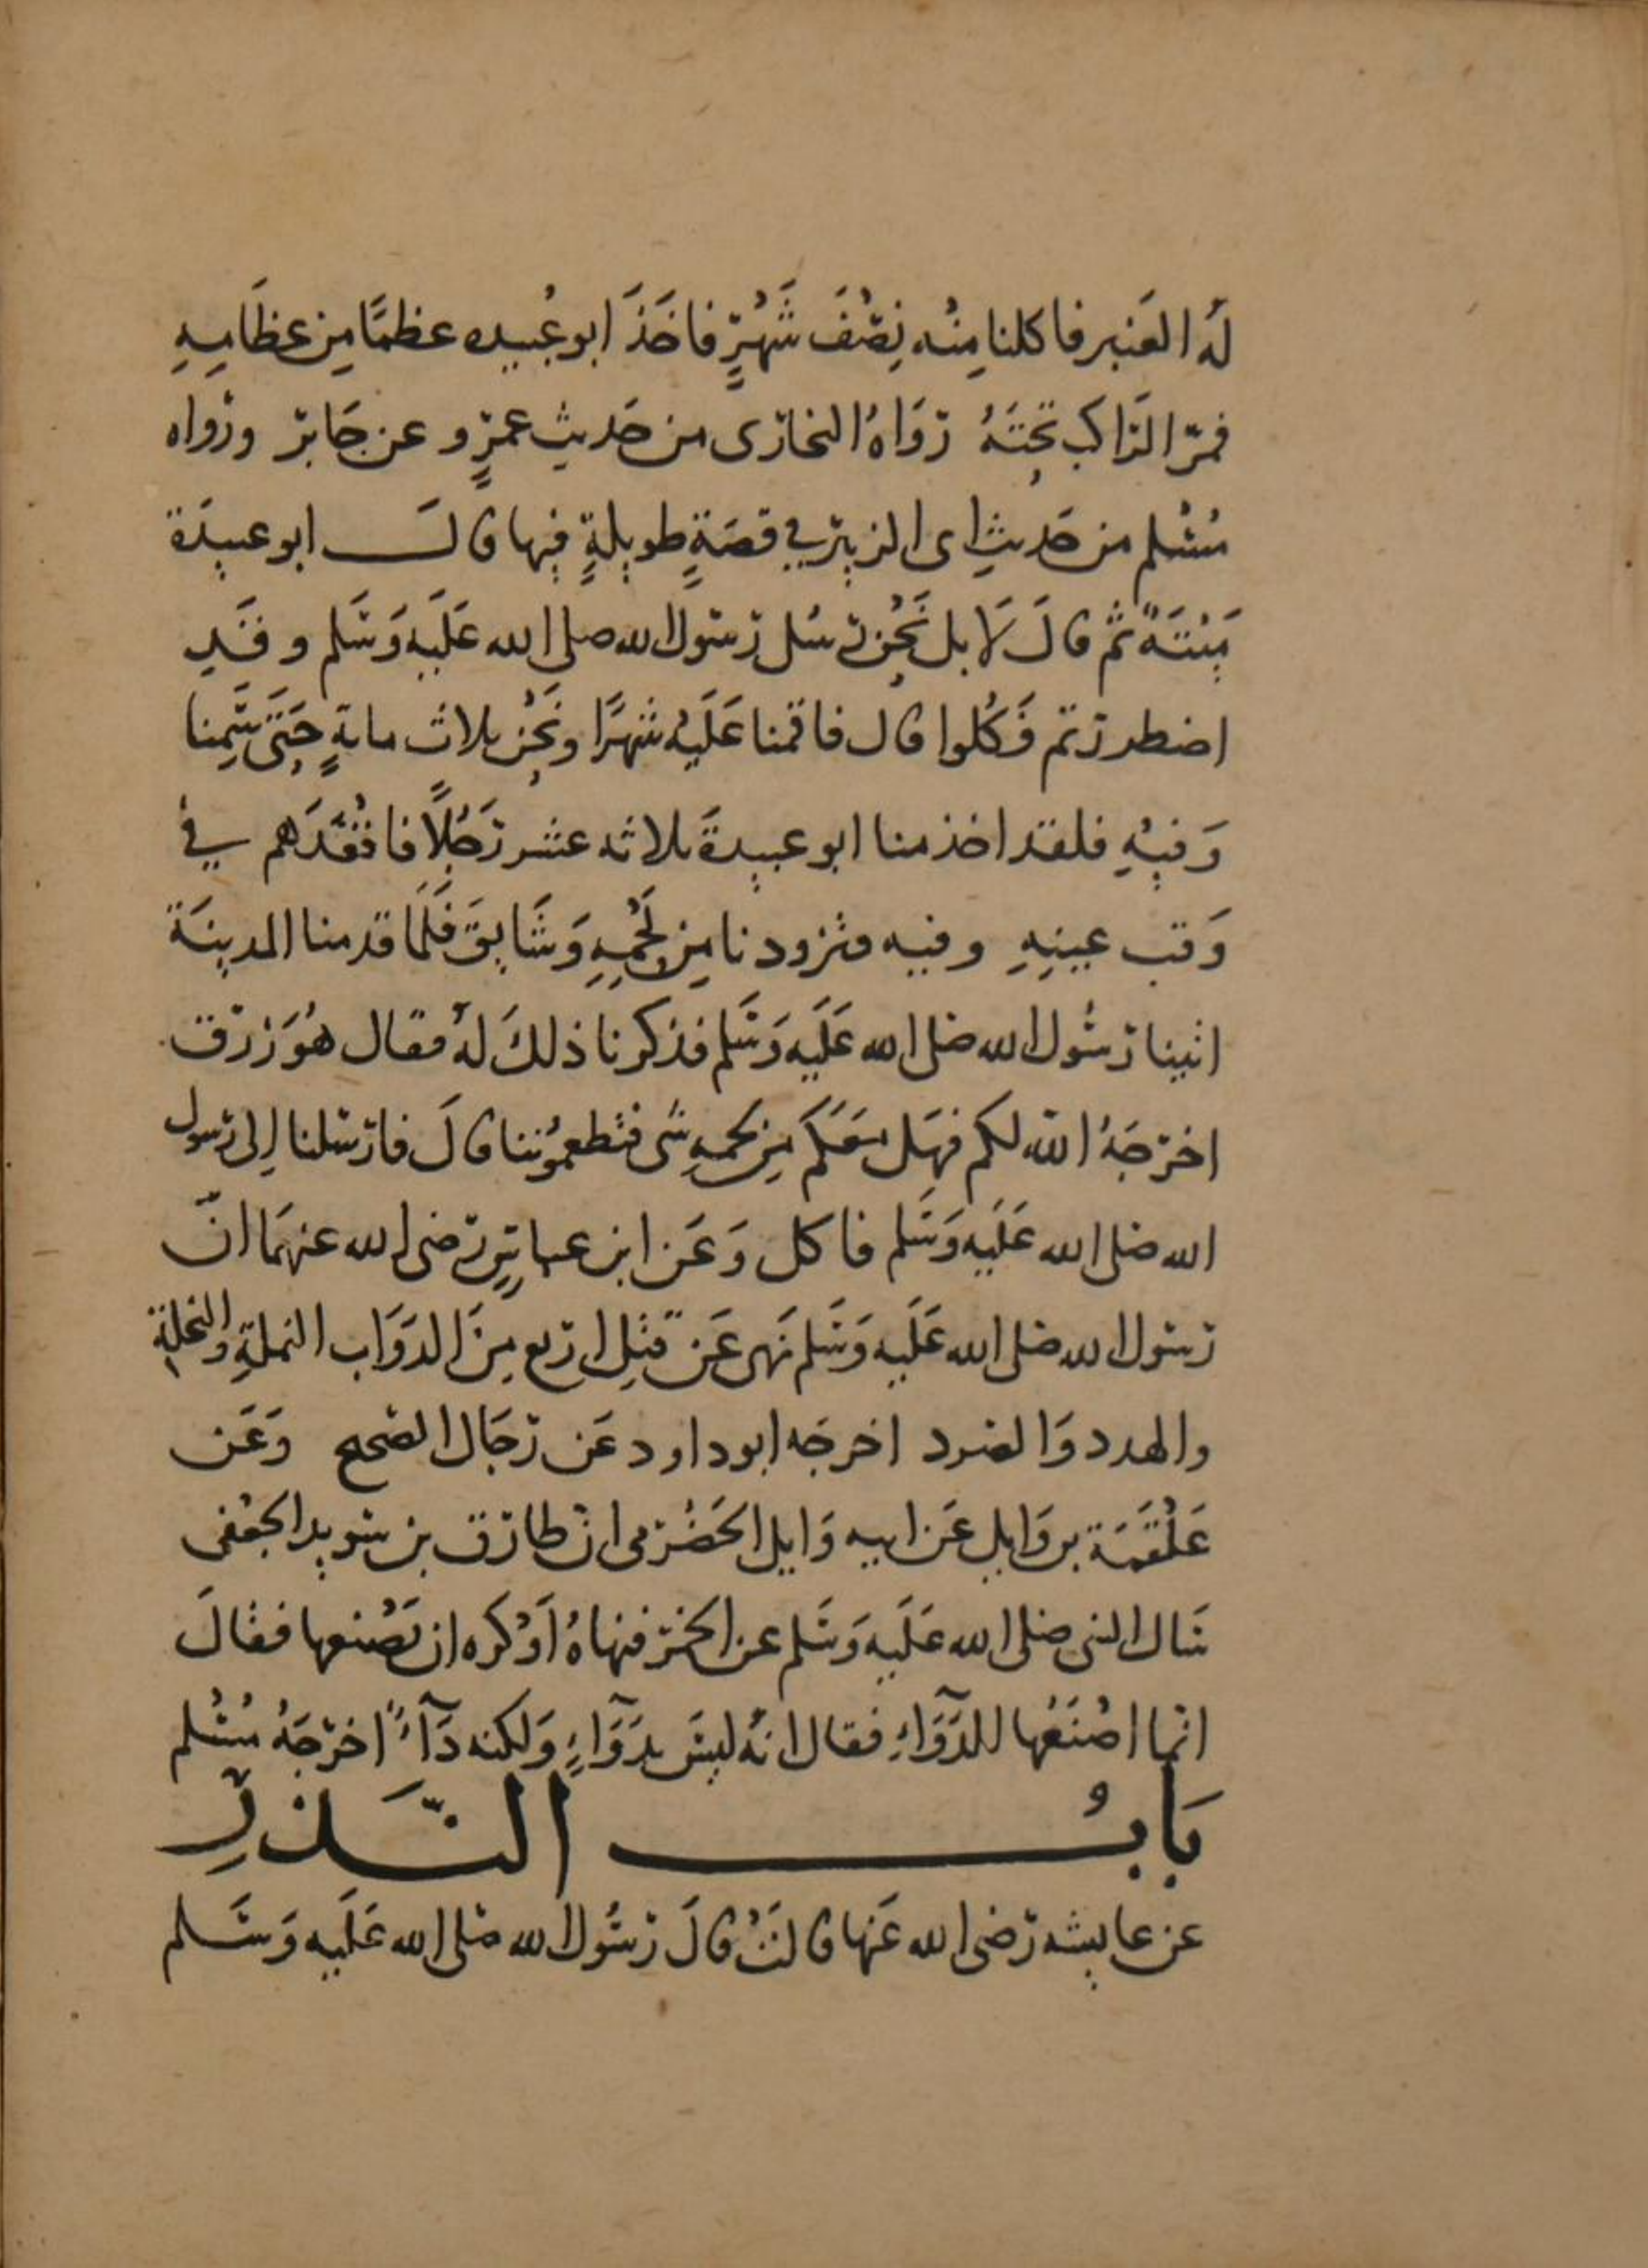 لهُ العَنبر فاكلنا مِنْه نِصْفَ شَهْرٍ فاخَذَ ابو عُبيده عظمًا مِن عظَامِهِ
فمرّ الرَّاكب تحتَهُ رَوَاهُ البخارى من حَديث عمرٍو عن جَابر ورَواه
مُسْلم من حَديثِ ابى الزبير في قصَةٍ طويلةٍ فيها قالَ ابو عبيدَة
مَيْتَةً ثم قالَ لَا بل نَحْن رسُل رسول الله صلى الله عَلَيه وَسَلم وقَدِ
اضطررتم فَكُلوا قال فاقمنا عَلَيْه شهرًا ونَحْن ثلاث مايةٍ حَتى سَمِنا
وَفيْهِ فلقد اخذ منا ابو عبيدةَ ثلاثه عشر رَجُلًا فاقْعَدَهم في
وَقب عينِهِ وفيه وتزودنا مِن لَحْمِهِ وَشَايقَ فَلَما قدمنا المدينَة
اتينا رَسُول الله صَلى الله عَلَيه وَسَلم فذكرنا ذلكَ لهُ فقال هُوَ رزق
اخرَجَهُ الله لكم فهَل مَعَكم مِن لحمهِ شى فتطعمُوننا قالَ فارسَلنا اِلى رسول
الله صَلى الله عَلَيه وَسَلم فاكل وَعَن ابن عباسٍ رَضى الله عنهمَا انّ
رَسول الله صَلى الله عَلَيه وَسَلم نَهى عَن قتلِ اربع مِنَ الدوَاب النملةِ والنحلةِ
والهدد وَالصرد اخرجَه ابو داود عَن رجَال الصحيح وَعَن
عَلْقَمَة بن وَايل عَن ابيه وَايل الحَضْرَمى ان طارق بن سويد الجعْفى
سَال النبى صَلى الله عَلَيه وَسَلم عن الخمر فنهاهُ اَوْ كره ان يَصْنعها فقالَ
انما اصْنَعُها للدَّوَآءِ فقال انهُ ليسَ بدَوَآءٍ وَلكنه دَآءٌ اخرَجَهُ مُسْلم
بَابُ النَّذرِ
عن عايشه رَضى الله عَنها قالتْ قالَ رَسُول الله صَلى الله عَلَيه وَسَلم